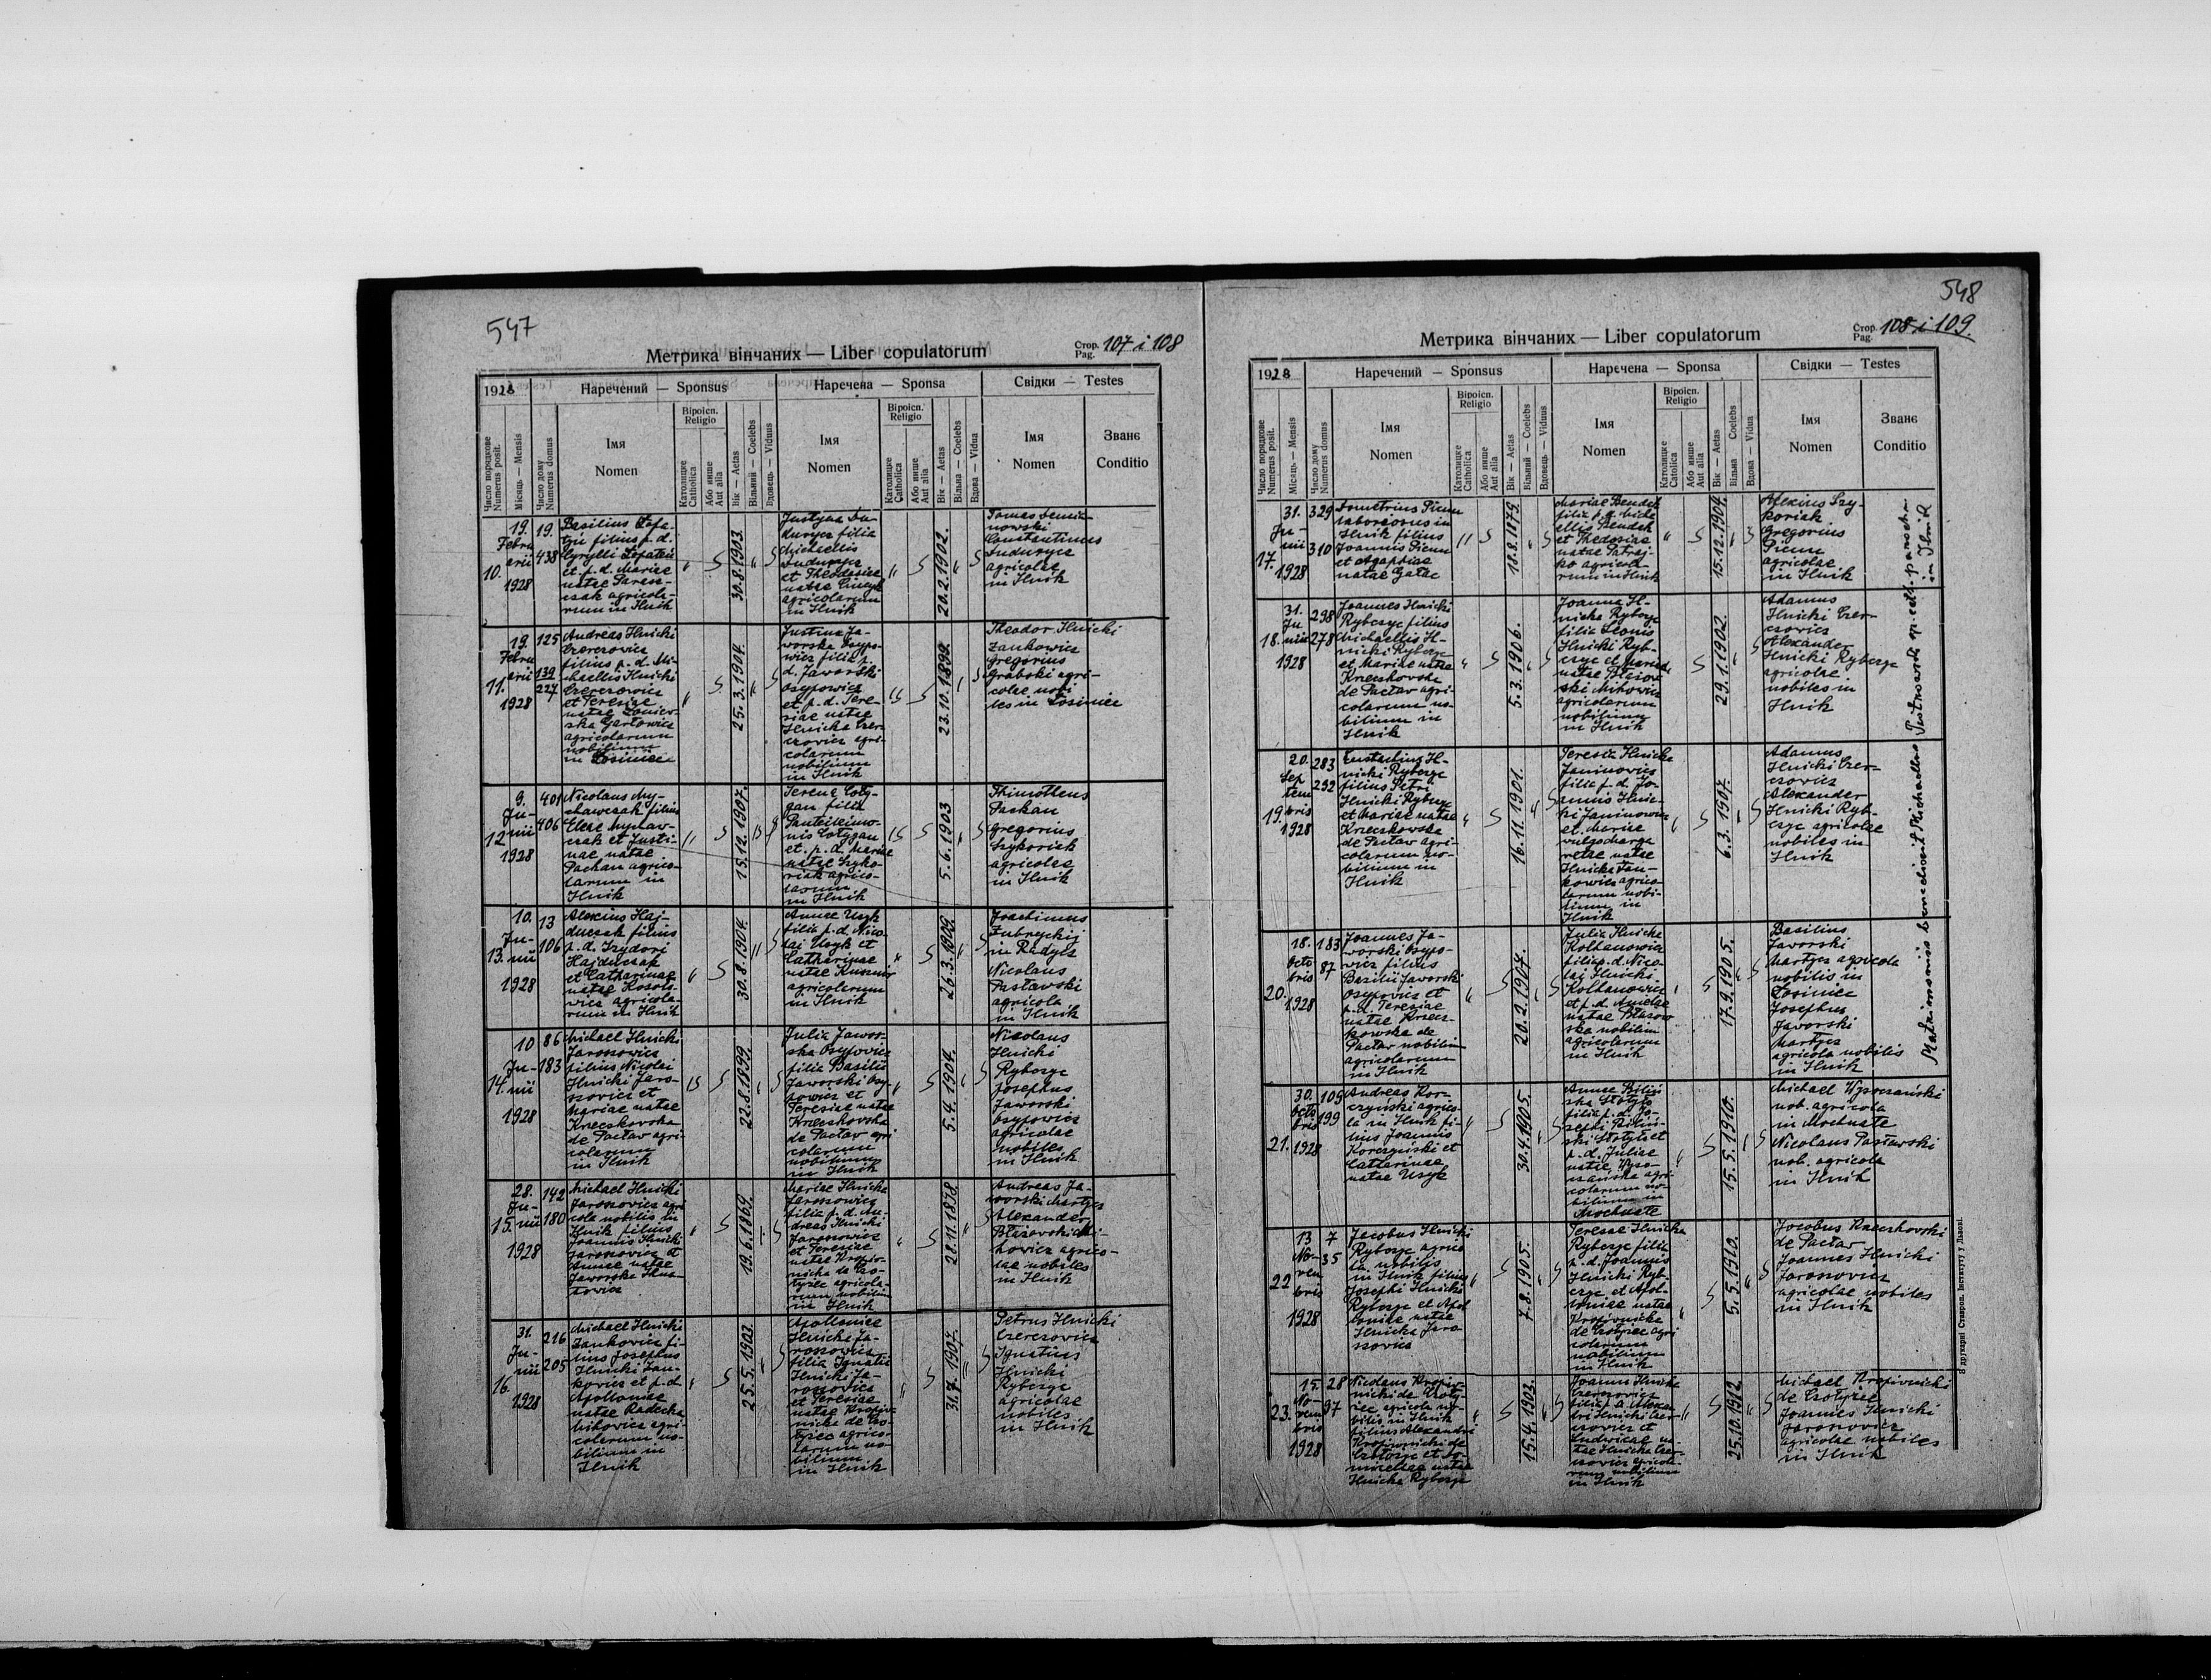 547
Метрика вінчаних — Liber copulatorum
Стор. Pag. 107 i 108
1928
Наречений — Sponsus
Наречена — Sponsa
Свідки — Testes
Число порядкове Numerus posit.
Місяць — Mensis
Число дому Numerus domus
Імя Nomen
Віроісп. Religio
Католицке Catholica
Або инше Aut alia
Вік — Aetas
Вільний — Coelebs
Вдовець — Viduus
Імя Nomen
Віроісп. Religio
Католицке Catholica
Або инше Aut alia
Вік — Aetas
Вільна — Coelebs
Вдова — Vidua
Імя Nomen
Званє Conditio
10.
19.
Febru
arii
1928
19.
438
Basilius
filius p. d.
et p. d. Mariae
natae
agricola-
rum in Ilnik
30.8.1903.
Justyna
filia
Michaelis
et Theodosiae
natae
agricolarum
in Ilnik
20.2.1902.
Constantinus
agricolae
in Ilnik
11.
19.
Febru
arii
1928
125
139
227
Andreas Ilnicki
Czerczowicz
filius p. d. Mi-
chaelis Ilnicki
Czerczowicz
et Teresiae
natae
agricolarum
nobilium
in Łosiniec
25.3.1904.
Justina Ja-
worska Osypo-
wicz filia p.
d. Jaworski
Osypowicz
et p. d. Tere-
siae natae
Ilnicka Czer-
czowicz agri-
colarum
nobilium
in Ilnik
Theodor Ilnicki
Zankowicz
Gregorius
Grabski agri-
colae nobi-
les in Łosiniec
12.
9.
Ju-
nii
1928
401
406
Nicolaus My-
chawczak filius
Eliae Mychaw-
czak et Justi-
nae natae
Pachan agrico-
larum in
Ilnik
15.12.1907.
filia
et. p. d. Mariae
natae Szyko-
riak agrico-
larum
in Ilnik
5.6.1903
Thimotheus
Pachan
Gregorius
Szykoriak
agricolae
in Ilnik
13.
10.
Ju-
nii
1928
13
106
Alexius Haj-
duczak filius
p. d. Izydori
Hajduczak
et Catharinae
natae
agricola-
rum in Ilnik
30.8.1904.
Annae Usyk
filia p. d. Nico-
lai Usyk et
Catharinae
natae
agricolarum
in Ilnik
26.3.1909.
Joachimus
in Radycz
Nicolaus
Pasławski
agricola
in Ilnik
14.
10
Ju-
nii
1928
86
183
Michael Ilnicki
Jaroszowicz
filius Nicolai
Ilnicki Jaro-
szowicz et
Mariae natae
Krzeczkowska
de Pacław agri-
colarum
in Ilnik
22.8.1899.
Julia Jawor-
ska Osypowicz
filia Basilii
Jaworski Osy-
powicz et
Teresiae natae
Krzeczkowska
de Pacław agri-
colarum
nobilium
in Ilnik
5.4.1904.
Nicolaus
Ilnicki
Rybczyc
Josephus
Jaworski
Osypowicz
agricolae
nobiles
in Ilnik
15.
28.
Ju-
nii
1928
142
180
Michael Ilnicki
Jaroszowicz agri-
cola nobilis in
Ilnik filius
Joannis Ilnicki
Jaroszowicz et
Annae natae
Jaworska
19.6.1869.
Mariae Ilnicka
Jaroszowicz
filia p. d. An-
dreas Ilnicki
Jaroszowicz
et Teresiae
natae Kropiw-
nicka de
agricola-
rum nobilium
in Ilnik
28.11.1878.
Andreas Ja-
worski Martycz
Alexander
Błażowski Mi-
howicz agrico-
lae nobiles
in Ilnik
16.
31.
Ju-
nii
1928
216
205
Michael Ilnicki
Zankowicz fi-
lius Josephus
Ilnicki Zan-
kowicz et p. d.
Apolloniae
natae Radecka
agri-
colarum no-
bilium in
Ilnik
25.5.1903.
Apolloniae
Ilnicka Ja-
roszowicz
filia Ignatii
Ilnicki Ja-
roszowicz
et Teresiae
natae Kropiw-
nicka de
agrico-
larum no-
bilium
in Ilnik
Petrus Ilnicki
Czerczowicz
Ignatius
Ilnicki
Rybczyc
agricolae
nobiles
in Ilnik
548
Метрика вінчаних — Liber copulatorum
Стор. Pag. 108 i 109.
1928
Наречений — Sponsus
Наречена — Sponsa
Свідки — Testes
Число порядкове Numerus posit.
Місяць — Mensis
Число дому Numerus domus
Імя Nomen
Віроісп. Religio
Католицке Catholica
Або инше Aut alia
Вік — Aetas
Вільний — Coelebs
Вдовець — Viduus
Імя Nomen
Віроісп. Religio
Католицке Catholica
Або инше Aut alia
Вік — Aetas
Вільна — Coelebs
Вдова — Vidua
Імя Nomen
Званє Conditio
17.
31.
Ju-
nii
1928
329
310
Demetrius Picun
laborosus in
Ilnik filius
Joannis Picun
et Agaphiae
natae
18.8.1879.
Mariae Bendek
filia p. d. Micha-
ellis Bendek
et Thedosiae
natae
agricola-
rum in Ilnik
15.12.1904.
Alexius Szy-
koriak
Gregorius
Picun
agricolae
in Ilnik
18.
31.
Ju-
nii
1928
298
278
Joannes Ilnicki
Rybczyc filius
Michaellis Il-
nicki Rybczyc
et Mariae natae
Krzeczkowska
de Pacław agri-
colarum no-
bilium in
Ilnik
5.3.1906.
Joanna Il-
nicka Rybczyc
filia Leonis
Ilnicki Ryb-
czyc et Mariae
natae Błażow-
ski Mihowicz
agricolarum
nobilium
in Ilnik
29.1.1902.
Adamus
Ilnicki Czer-
czowicz
Alexander
Ilnicki Rybczyc
agricolae
nobiles in
Ilnik
19.
20.
Sep
tem
bris
1928
283
292
Eustachius Il-
nicki Rybczyc
filius Petri
Ilnicki Rybczyc
et Mariae natae
Krzeczkowska
de Pacław agri-
colarum no-
bilium in
Ilnik
16.11.1901.
Teresia Ilnicka
Janinowicz
filia p. d. Jo-
annis Ilnic-
ki Janinowicz
et Mariae
vulgo Marga
retae natae
Ilnicka Zan-
kowicz agrico-
larum nobi-
lium in
Ilnik
6.3.1907.
Adamus
Ilnicki Czer-
czowicz
Alexander
Ilnicki Ryb-
czyc agricolae
nobiles in
Ilnik
20.
18.
Octo
bris
1928
183
87
Joannes Ja-
worski Osypo-
wicz filius
Basilii Jaworski
Osypowicz et
p. d. Teresiae
natae Krzecz-
kowska de
Pacław nobilium
agricolarum
in Ilnik
20.2.1907.
Julia Ilnicka
Koltanowicz
filia p. d. Nico-
lai Ilnicki
Koltanowicz
et p. d. Anielae
natae Błażow-
ska nobilium
agricolarum
in Ilnik
17.9.1905.
Basilius
Jaworski
Martycz agricola
nobilis in
Łosiniec
Josephus
Jaworski
Martycz
agricola nobilis
in Ilnik
21.
30.
Octo
bris
1928
109
199
Andreas Kor-
czyński agrico-
la in Ilnik fi-
lius Joannis
Korczyński et
Catharinae
natae Usyk
30.4.1905.
Annae Biliń-
ska
filia p. d. Jo-
sephi Biliń-
ski
p. d. Juliae
natae Wyso-
czańska agri-
colarum no-
bilium in
Mochnate
15.5.1910.
Michael Wysoczański
nob. agricola
in Mochnate
Nicolaus Pasławski
nob. agricola
in Ilnik
22
13
No-
vem
bris
1928
7
35
Jacobus Ilnicki
Rybczyc agrico
la nobilis
in Ilnik filius
Josephi Ilnicki
Rybczyc et Apol
loniae natae
Ilnicka Jaro
szowicz
7.8.1905.
Teresae Ilnicka
Rybczyc filia
p. d. Joannis
Ilnicki Ryb-
czyc et Apol-
loniae natae
Kropiwnicka
de agri
colarum
nobilium
in Ilnik
5.5.1910.
Jacobus Krzeczkowski
de Pacław
Joannes Ilnicki
Jaroszowicz
agricolae nobiles
in Ilnik
23.
15.
No-
vem
bris
1928
28
97
Nicolaus Kropiw-
nicki de
agricola no-
bilis in Ilnik
filius Alexandri
Kropiwnicki de
Ilnicka Rybczyc
15.4.1903.
Joannis Ilnicka
Czerczowicz
filia p. d. Alexan-
dri Ilnicki Czer-
czowicz et
Ludwicae na-
tae Ilnicka Czer-
czowicz agricola-
rum nobilium
in Ilnik
25.10.1912.
Michael Kropiwnicki
de
Joannes Ilnicki
Jaroszowicz
agricolae nobiles
in Ilnik
Matrimoniis benedixit Michaellus parochus
in Ilnik
З друкарні Ставроп. Інституту у Львові.